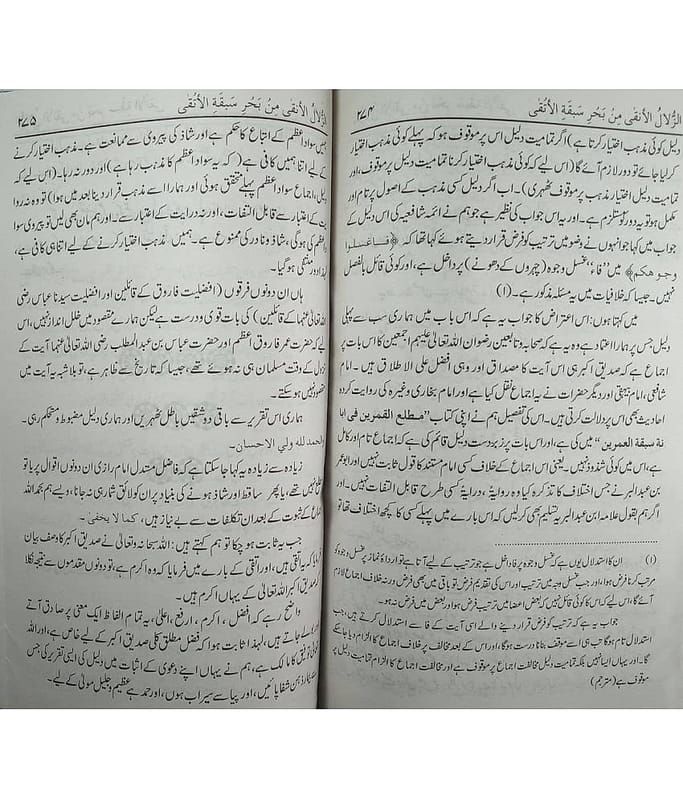 ۲۷۴ الزُّلالُ الأنقٰی مِنْ بَحْرِ سَبقَةِ الأتْقٰی
دلیل کوئی مذہب اختیار کرتا ہے) اگر تمامیت دلیل اس پر موقوف ہو کہ پہلے کوئی مذہب اختیار
کر لیا جائے تو دور لازم آئے گا (اس لیے کہ کوئی مذہب اختیار کرنا تمامیت دلیل پر موقوف ، اور
تمامیت دلیل اختیار مذہب پر موقوف ٹھہری)۔ اب اگر دلیل کسی مذہب کے اصول پر تام اور
مکمل ہو تو یہ دور کو مستلزم ہے۔ اور یہ اس جواب کی نظیر ہے جو ہم نے ائمہ شافعیہ کی اس دلیل کے
جواب میں کہا جو انہوں نے وضو میں ترتیب کو فرض قرار دیتے ہوئے کہا تھا کہ ﴿فاغسلوا
وجوهكم﴾ میں ”فا“ غسل وجوہ (چہروں کے دھونے) پر داخل ہے، اور کوئی قائل بالفصل
نہیں۔ جیسا کہ خلافیات میں یہ مسئلہ مذکور ہے۔ (۱)
میں کہتا ہوں: اس اعتراض کا جواب یہ ہے کہ اس باب میں ہماری سب سے پہلی
دلیل جس پر ہمارا اعتماد ہے وہ یہ ہے کہ صحابہ و تابعین رضوان اللہ تعالیٰ علیہم اجمعین کا اس بات پر
اجماع ہے کہ صدیق اکبر ہی اس آیت کا مصداق اور وہی افضل علی الاطلاق ہیں۔ امام
شافعی، امام بیہقی اور دیگر حضرات نے یہ اجماع نقل کیا ہے اور امام بخاری وغیرہ کی روایت کردہ
احادیث بھی اس پر دلالت کرتی ہیں۔ اس کی تفصیل ہم نے اپنی کتاب ”مطلع القمرین فی ابا
نة سبقة العمرین“ میں کی ہے، اور اس بات پر زبردست دلیل قائم کی ہے کہ اجماع تام اور کامل
ہے، اس میں کوئی شذوذ نہیں۔ یعنی اس اجماع کے خلاف کسی امام مستند کا قول ثابت نہیں اور ابو عمر
بن عبدالبر نے جس اختلاف کا تذکرہ کیا وہ روایۃً، درایۃً کسی طرح قابل التفات نہیں۔ اور
اگر ہم بقول علامہ ابن عبدالبر یہ تسلیم بھی کر لیں کہ اس بارے میں پہلے کسی کا کچھ اختلاف تھا تو
(۱) ان کا استدلال یوں ہے کہ غسل وجوہ پر فا داخل ہے جو ترتیب کے لیے آتا ہے تو ارادۂ نماز پر غسل وجوہ کو
مرتب کرنا فرض ہوا، اور جب غسل وجہ میں ترتیب اور اس کی تقدیم فرض تو باقی میں بھی فرض ورنہ خلاف اجماع لازم
آئے گا، اس لیے کہ اس کا کوئی قائل نہیں کہ بعض اعضا میں ترتیب فرض ہو اور بعض میں فرض نہ ہو۔
جواب یہ ہے کہ ترتیب کو فرض قرار دینے والے اسی آیت کے فا سے استدلال کرتے ہیں، جب
استدلال تام ہوگا تب ہی اسے موقف بنانا درست ہوگا، اور اس کے بعد اس پر خلاف اجماع کا الزام دیا جا سکے
گا۔ اور یہاں ایسا نہیں، بلکہ تمامیت دلیل مخالفت اجماع پر موقوف ہے اور مخالفت اجماع کا الزام تمامیت دلیل پر
موقوف ہے (مترجم)
۲۷۵ الزُّلالُ الأنقٰی مِنْ بَحْرِ سَبقَةِ الأتْقٰی
ہمیں سواد اعظم کے اتباع کا حکم ہے اور شاذ کی پیروی سے ممانعت ہے۔ مذہب اختیار کرنے
کے لیے اتنا ہمیں کافی ہے (کہ یہ سواد اعظم کا مذہب رہا ہے) اور دور نہ رہا۔ (اس لیے کہ
دلیل، اجماع سواد اعظم پہلے متحقق ہوئی اور ہمارا اسے مذہب قرار دینا بعد میں ہوا) تو وہ نہ روا
یت کے اعتبار سے قابل التفات، اور نہ درایت کے اعتبار سے۔ اور ہم مان بھی لیں تو پیروی سواد
اعظم کی ہوگی، شاذ و نادر کی ممنوع ہے۔ ہمیں مذہب اختیار کرنے کے لیے اتنا ہی کافی ہے،
لہٰذا دور منتفی ہو گیا۔
ہاں ان دونوں فرقوں (افضلیت فاروق کے قائلین اور افضلیت سیدنا عباس رضی
اللہ تعالیٰ عنہما کے قائلین) کی بات قوی و درست ہے لیکن ہمارے مقصود میں خلل انداز نہیں، اس
لیے کہ حضرت عمر فاروق اعظم اور حضرت عباس بن عبدالمطلب رضی اللہ تعالیٰ عنہما آیت کے
نزول کے وقت مسلمان ہی نہ ہوئے تھے، جیسا کہ تاریخ سے ظاہر ہے، تو بلا شبہ یہ آیت میں
مقصود نہیں ہو سکتے۔
ہماری اس تقریر سے باقی دو شقیں باطل ٹھہریں اور ہماری دلیل مضبوط و مستحکم رہی۔
والحمد لله ولي الاحسان۔
زیادہ سے زیادہ یہ کہا جا سکتا ہے کہ فاضل مستدل امام رازی ان دونوں اقوال پر یا تو
مطلع نہیں تھے، یا پھر ساقط اور شاذ ہونے کی بنیاد پر ان کو لائق شمار ہی نہ جانا، ویسے ہم بحمد اللہ
اجماع کے ثبوت کے بعد ان تکلفات سے بے نیاز ہیں، کما لا یخفیٰ۔
جب یہ ثابت ہو چکا تو ہم کہتے ہیں: اللہ سبحانہ وتعالیٰ نے صدیق اکبر کا وصف بیان
فرمایا کہ یہ اتقی ہیں، اور اتقی کے بارے میں فرمایا کہ وہ اکرم ہے، تو دونوں مقدموں سے نتیجہ نکلا
کہ صدیق اکبر اللہ تعالیٰ کے یہاں اکرم ہیں۔
واضح رہے کہ افضل، اکرم، ارفع، اعلیٰ، یہ تمام الفاظ ایک معنی پر صادق آتے
اور بولے جاتے ہیں، لہٰذا ثابت ہوا کہ فضل مطلق کلی صدیق اکبر کے لیے خاص ہے، اور اللہ
تعالیٰ ہی توفیق کا مالک ہے، ہم نے یہاں اپنے دعویٰ کے اثبات میں دلیل کی ایسی تقریر کی جس
سے بیمار ذہن شفا پائیں، اور پیاسے سیراب ہوں، اور حمد ہے عظیم و جلیل مولیٰ کے لیے۔